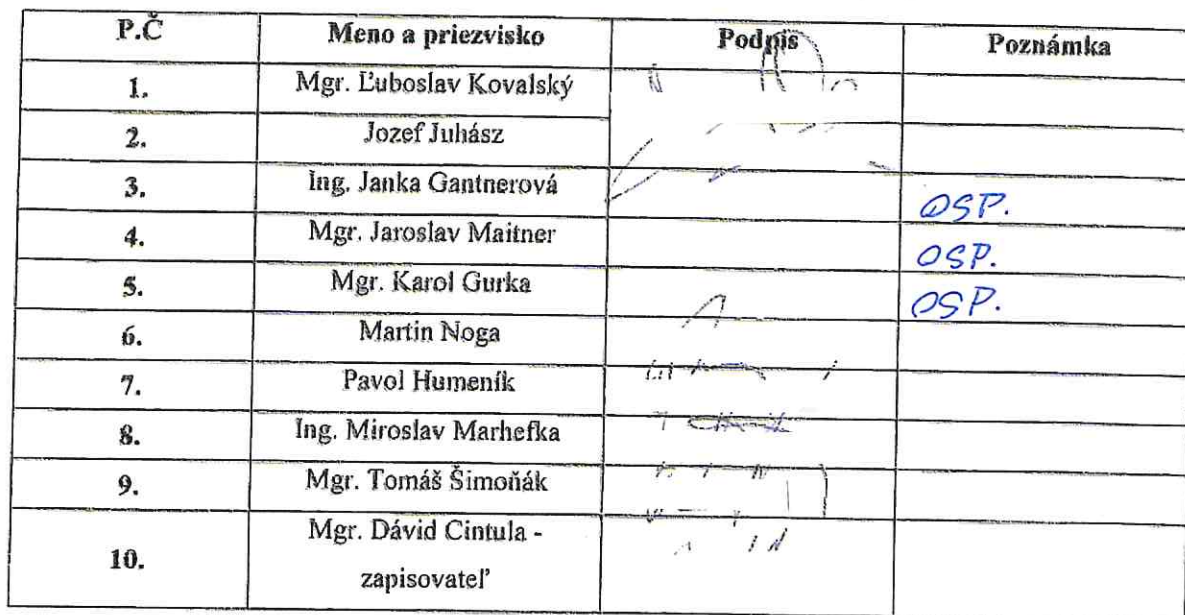 P.Č Meno a priezvisko Podpis Poznámka
1. Mgr. Ľuboslav Kovalský
2. Jozef Juhász
3. Ing. Janka Gantnerová OSP.
4. Mgr. Jaroslav Maitner OSP.
5. Mgr. Karol Gurka OSP.
6. Martin Noga
7. Pavol Humeník
8. Ing. Miroslav Marhefka
9. Mgr. Tomáš Šimoňák
10. Mgr. Dávid Cintula -
zapisovateľ